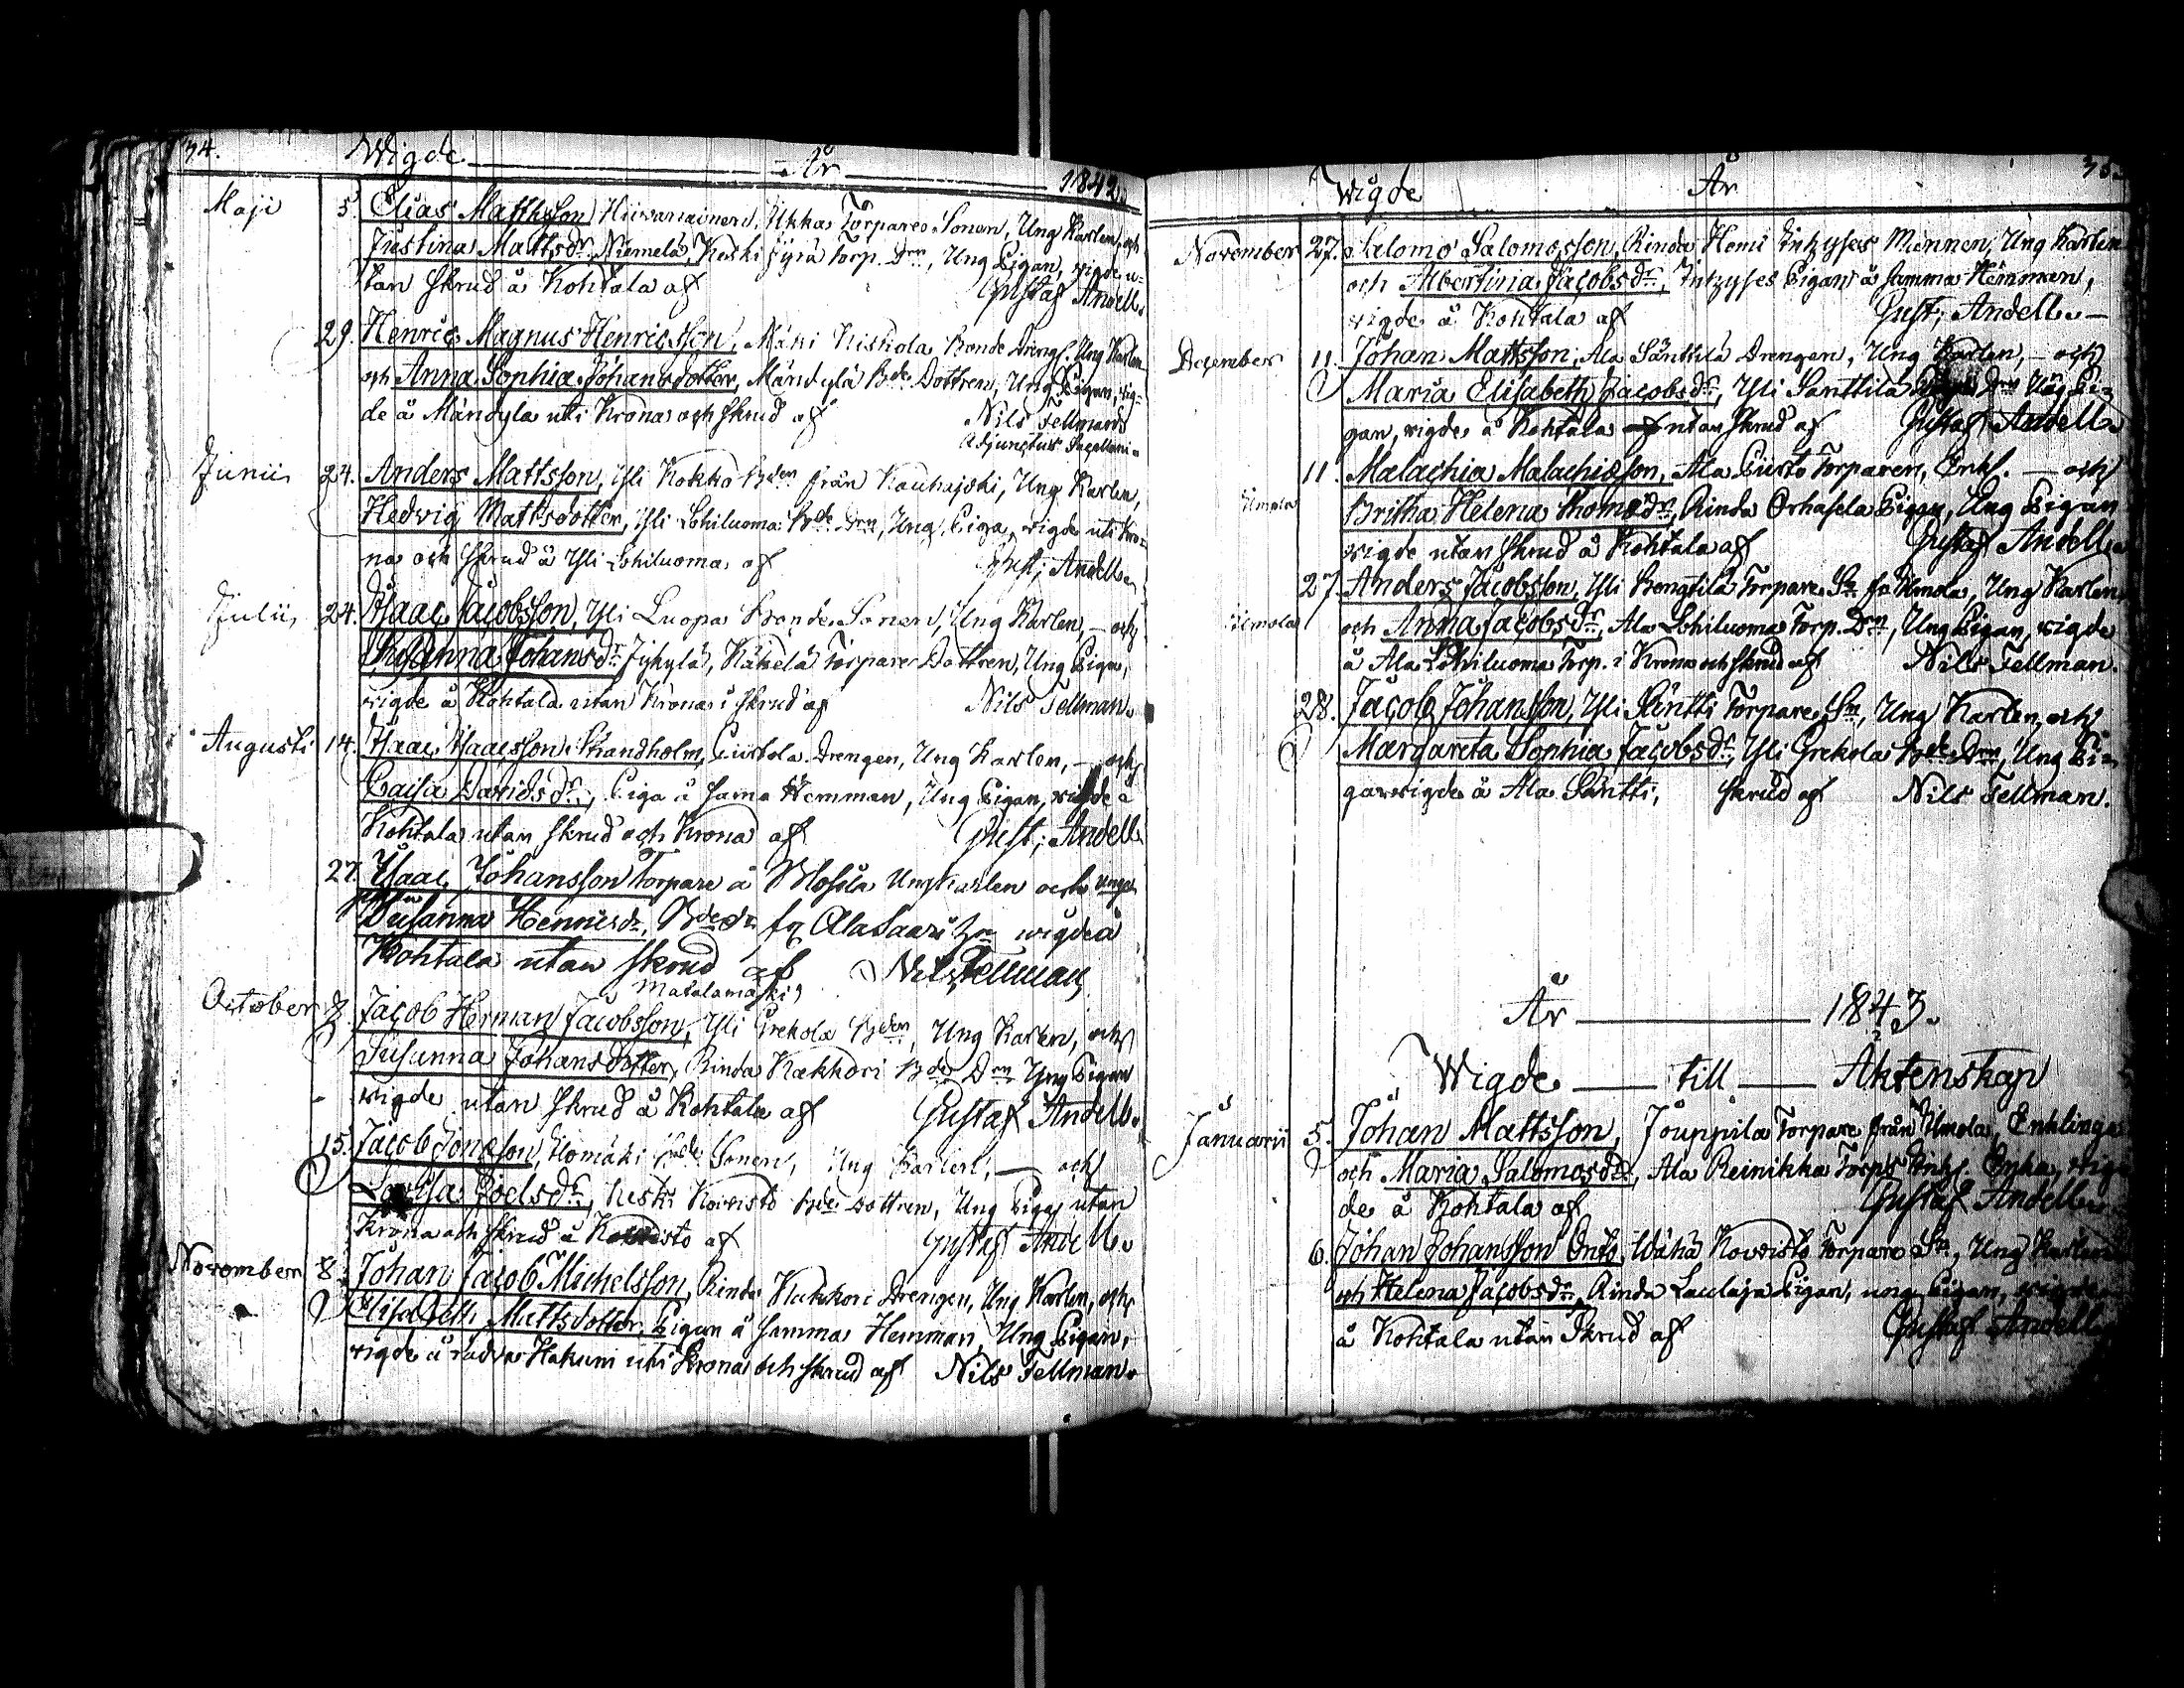 74. Wigde År 1842.
Maji 5 Elias Mattsson Hiivanainen, Ukka Torpares Sonen, Ung Karlen, och
Justina Mattsdr Niemelä, Keski Jyrä Torp. Drn, Ung Pigan, vigde u-
tan skrud å Kohtala af Gustaf Andell.
29. Henric Magnus Henricsson, Mäki Kiskola Bonde Dreng. Ung Karlen
och Anna Sophia Johansdotter, Mändylä Bde Dottren, Ung Pigan, vig-
de å Mändyla uti Krona och skrud af Nils Fellman
Adjunctus Sacellani
Junii 24. Anders Mattsson, Yli Kokko Bden från Kauhajoki, Ung Karlen,
Hedvig Mattsdotter, Yli Lohiluoma Bde Drn, Ung Piga, vigde uti Kro-
na och skrud å Yli Lohiluoma af Gust; Andell
Julii 24. Isaac Jacobsson, Yli Luopa Bonde Sonen, Ung Karlen, — och
Susanna Johansdr Jyhylä, Käkelä Torpare Dottren, Ung Pigan,
vigde å Kohtala utan Krona i skrud af Nils Fellman.
Augusti 14. Isaac Isaacsson Strandholm, Piirtola Drengen, Ung Karlen, — och
Caisa Davidsdr, Piga å sama Hemman, Ung Pigan, vigde å
Kohtala utan skrud och Krona af Gust; Andell
27. Isaac Johansson Torpare å Mossla Ungkarlen och Unga
Susanna Henricsdr, Bdedr fr Ala Saari hn wigde å
Kohtala utan skrud af Nils Fellman
Matalamäki
October 8. Jacob Herman Jacobsson, Yli Grekola Bden, Ung Karlen, och
Susanna Johansdotter, Rinda Kækkori Bde Drn Ung Pigan
vigde utan skrud å Kohtala af Gustaf Andell.
15. Jacob Jonasson, Homäki Bde Sonen, Ung Karlen, — och
Lovisa Joelsdr, Keski Kovisto Bde Dottren, Ung Pigan utan
Krona och skrud å Kovisto af Gustaf Andell.
November 8. Johan Jacob Michelsson, Rinda Kækkori Drengen, Ung Karlen, och
Elisabeth Mattsdotter, Pigan å samma Hemman, Ung Pigan,
vigde å Hakuni uti Krona och skrud af Nils Fellman.
Wigde År 75.
November 27. Salomo Salomosson, Rinda Homi Inhyses Mannen, Ung Karlen
och Albertina Jacobsdr, Inhyses Pigan å samma Hemman,
vigde å Kohtala af Gust; Andell. —
December 11. Johan Mattsson, Ala Sänttilä Drengen, Ung Karlen, — och
Maria Elisabeth Jacobsdr, Yli Santtila Drn Ung Pi-
gan, vigde å Kohtala utan skrud af Gustaf Andell.
11. Malachia Malachiasson, Ala Piirto Torparen, Enkl. — och
Ilmola Britha Helena Thomædr, Rinda Orhasela Pigan, Ung Pigan
vigde utan skrud å Kohtala af Gustaf Andell.
27. Anders Jacobsson, Yli Bengtilä Torpare Sn fr Ilmola, Ung Karlen
Ilmola och Anna Jacobsdr, Ala Lohiluoma Torp. Drn, Ung Pigan, vigde
å Ala Lohiluoma Torp. i Krona och skrud af Nils Fellman.
28. Jacob Johansson, Yli Säntti Torpare Sn, Ung Karlen, och
Margareta Sophia Jacobsdr, Yli Grekola Bde Drn, Ung Pi-
gan vigde å Ala Säntti, skrud af Nils Fellman.
År — 1843.
Wigde — till — Äktenskap
Januarii 5. Johan Mattsson, Jouppila Torpare från Ilmola, Enklinge
och Maria Salomosdr, Ala Reinikka Torps Inhs. Enka, vig-
de å Kohtala af Gustaf Andell.
6. Johan Johansson Onto, Wähä Kovisto Torpare Sn, Ung Karlen
och Helena Jacobsdr, Rinda Laulaja Pigan, unga Pigan, vigde
å Kohtala utan Skrud af Gustaf Andell